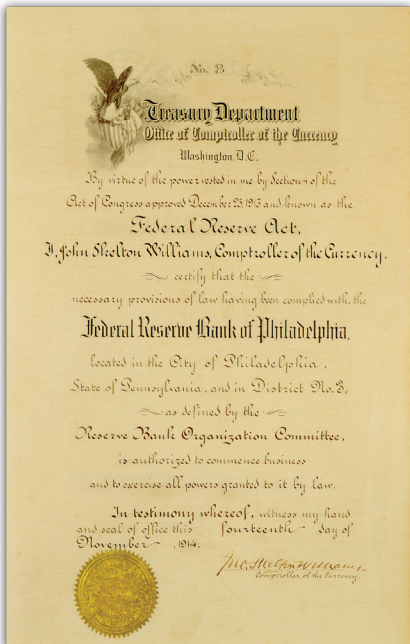 No. 3
Treasury Department
Office of Comptroller of the Currency
Washington, D.C.
By virtue of the power vested in me by Section 4 of the
Act of Congress approved December 23, 1913 and known as the
Federal Reserve Act,
I, John Skelton Williams, Comptroller of the Currency,
certify that the
necessary provisions of law having been complied with, the
Federal Reserve Bank of Philadelphia,
located in the City of Philadelphia,
State of Pennsylvania, and in District No. 3,
as defined by the
Reserve Bank Organization Committee,
is authorized to commence business
and to exercise all powers granted to it by law.
In testimony whereof, witness my hand
and seal of office this fourteenth day of
November, 1914.
Jno. Skelton Williams
Comptroller of the Currency.